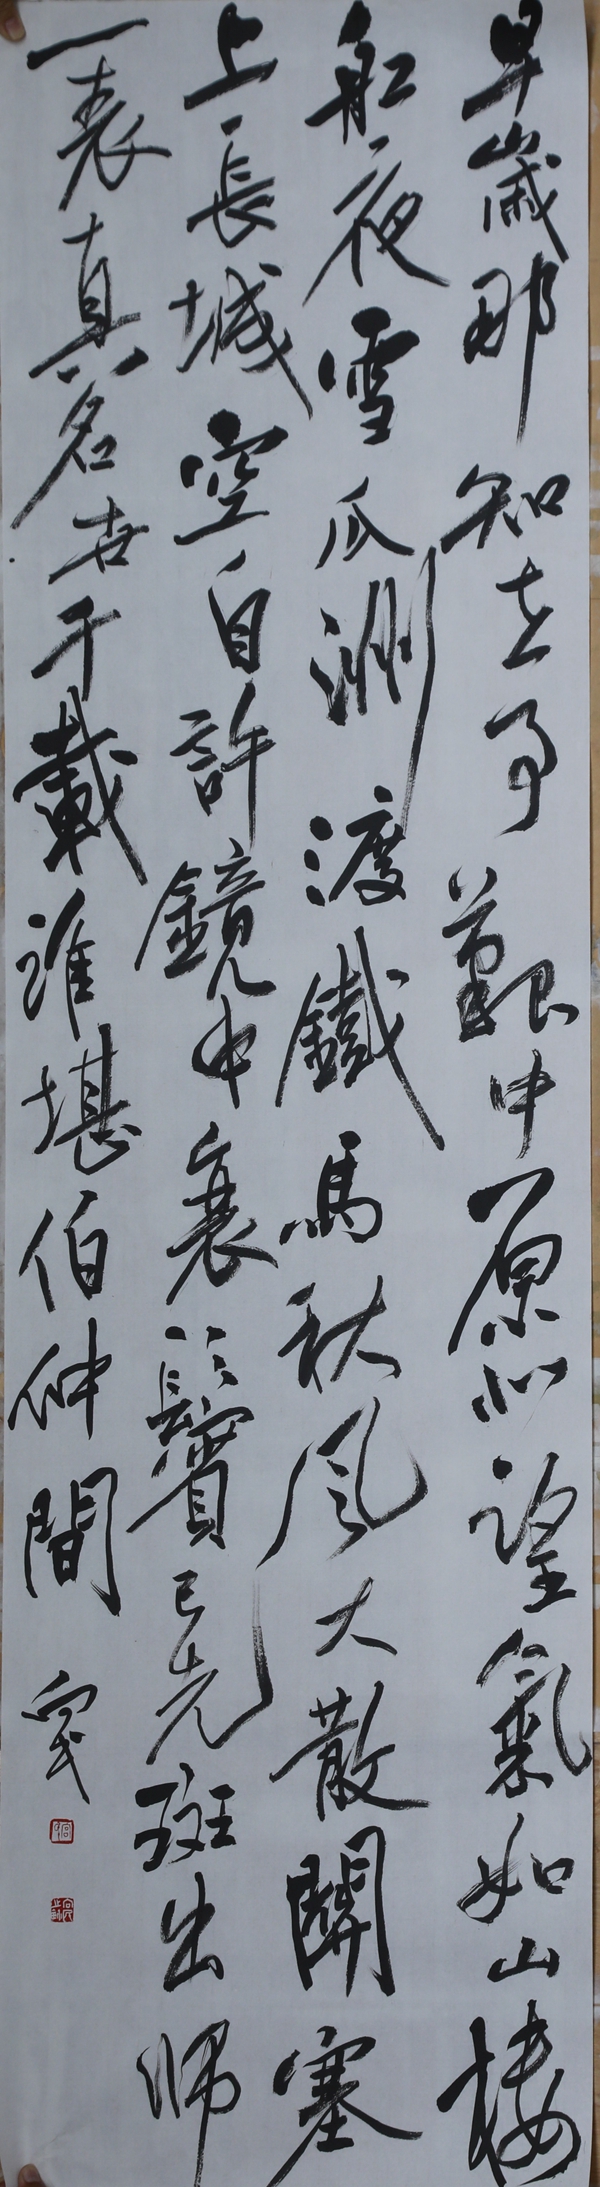 早歲那知世事艱中原北望氣如山樓
舡夜雪瓜洲渡鐵馬秋風大散關塞
上長城空自許鏡中衰鬢已先斑出師
一表真名世千載誰堪伯仲間